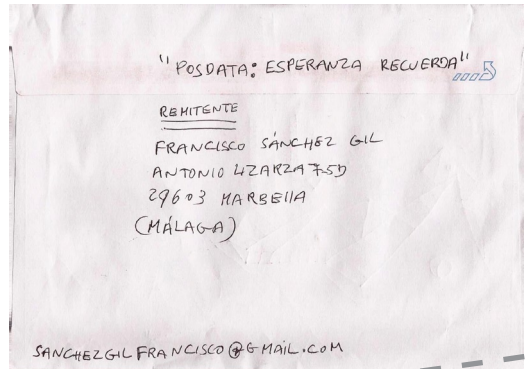 "POSDATA: ESPERANZA RECUERDA"
REMITENTE
FRANCISCO SÁNCHEZ GIL
ANTONIO
29603 MARBELLA
(MÁLAGA)
SANCHEZGILFRANCISCO@GMAIL.COM